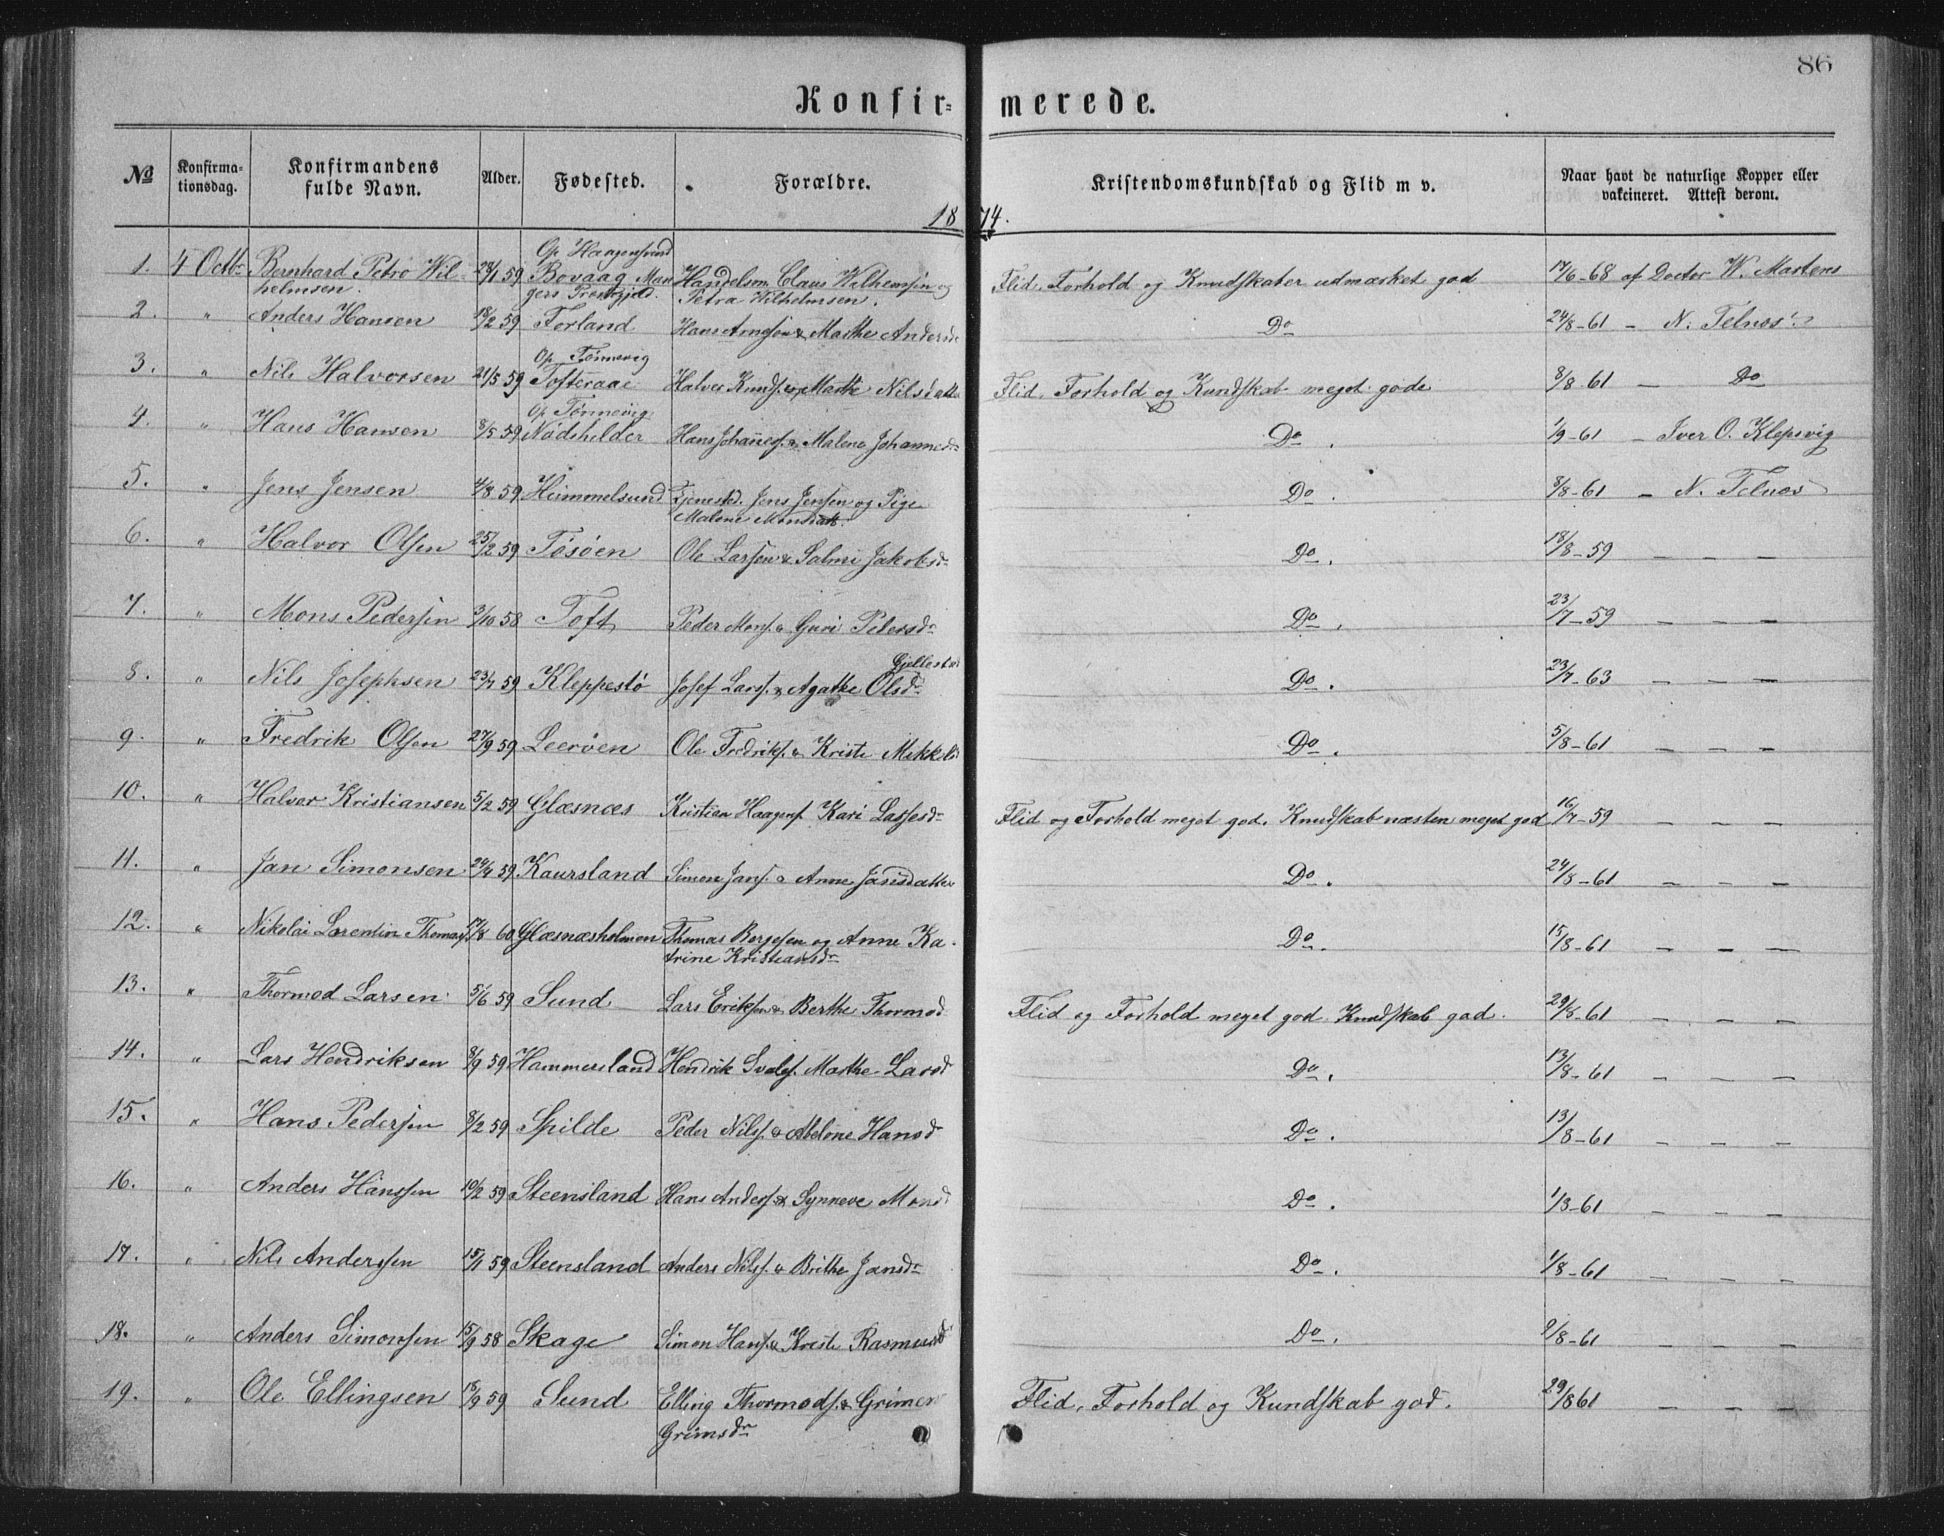 86
Konfir- merede.
No Konfirma- tionsdag. Konfirmandens fulde Navn. Alder. Fødested. Forældre. Kristendomskundskab og Flid m v. Naar havt de naturlige Kopper eller vakcineret. Attest derom.
1874.
Op Haagensund
1. 4 Octbr Bernhard Petro Wil- 59 Bovaag Man Handelsm. Claus Wilhemsen og Flid, Forhold og Kundskaber udmærket god 17/6-68 af Doctor W. Martens
helmsen. gers Præstgjæld. Petra Wilhelmsen.
2. " Anders Hansen 18/2 59 Forland Hans Arnesen & Marthe Andersd. Do 24/8-61 - N. Telnæs
Op Tønnevig
3. " Nils Halvorsen 21/5 59 Tofteraae Halvor Knuds. & Marthe Nilsdatter Flid, Forhold og Kundskab meget gode 8/8-61 - Do
Op Tønnevig
4. " Hans Hansen 8/5 59 Nødshilder Hans Johannes. & Malene Johannesdr Do. 1/9-61 - Iver O. Klepsvig
5. " Jens Jensen 4/8 59 Hummelsund Tjenestd. Jens Jensen og Pige Do. 8/8-61 - N. Telnæs
Malene Monsdatt.
6. " Halvor Olsen 25/2 59 Tøsøen Ole Larsen & Salmi Jakobsdr Do. 18/8-59 - - -
7. " Mons Pedersen 3/10 58 Toft Peder Mons. & Guri Petersdr Do. 23/7-59 - - -
Gjellestad
8. " Nils Josephsen 23/7 59 Kleppestø Josef Lars. & Agathe Olsdr Do. 23/7-63 - - -
9. " Fredrik Olsen 27/9 59 Leerøen Ole Fredriks. & Kristi Mikkelsd Do. 5/8-61 - - -
10. " Halvor Kristiansen 5/2 59 Glæsnæs Kristian Haagens. Kari Lassesdr Flid og Forhold meget god. Kundskab næsten meget god 16/7-59 - - -
11. " Jan Simonsen 24/4 59 Kaursland Simon Jans. & Anne Jansdatter Do. 24/8-61 - - -
12. " Nikolai Lorentin Thomas. 17/8 60 Glæsnæsholmen Thomas Børgesen og Anne Ka- Do. 15/8-61 - - -
trine Kristiansdr
13. " Thormod Larsen 5/6 59 Sund Lars Eriksen & Berthe Thormod Flid og Forhold meget god. Kundskab god. 29/8-61 - - -
14. " Lars Hendriksen 8/9 59 Hammersland Hendrik Marthe Larsd Do. 13/8-61 - - -
15. " Hans Pedersen 8/2 59 Spilde Peder Nils. & Abelone Hansd Do. 13/8-61 - - -
16. " Anders Hanssen 10/2 59 Steensland Hans Anders. & Synneve Monsd Do. 1/3-61 - - -
17. " Nils Anderssen 15/1 59 Steensland Anders Nils. & Brithe Jansdr Do. 1/8-61 - - -
18. " Anders Simonsen 15/9 58 Skage Simon Hans. & Kristi Rasmusd Do. 9/8-61 - - -
19. " Ole Ellingsen 15/9 59 Sund Elling Thormods. & Grimer Flid, Forhold og Kundskab god. 29/8 61 - - -
Grimsdr